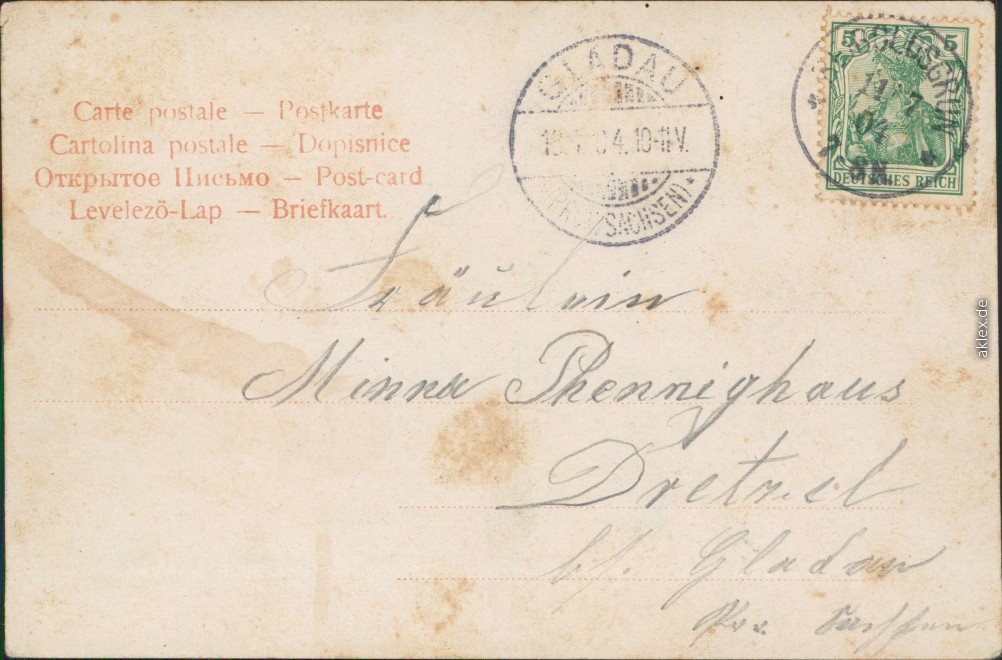 Carte postale — Postkarte
Cartolina postale — Dopisnice
Открытое Письмо — Post-card
Levelezö-Lap — Briefkaart.
GLADAU
04. 10-11V.
SACHSEN) *
5 5
04
DEUTSCHES REICH
Fräulein
Minna Phennighaus
Dretzel
b/. Gladau
Prv. Sachsen
aklex.de